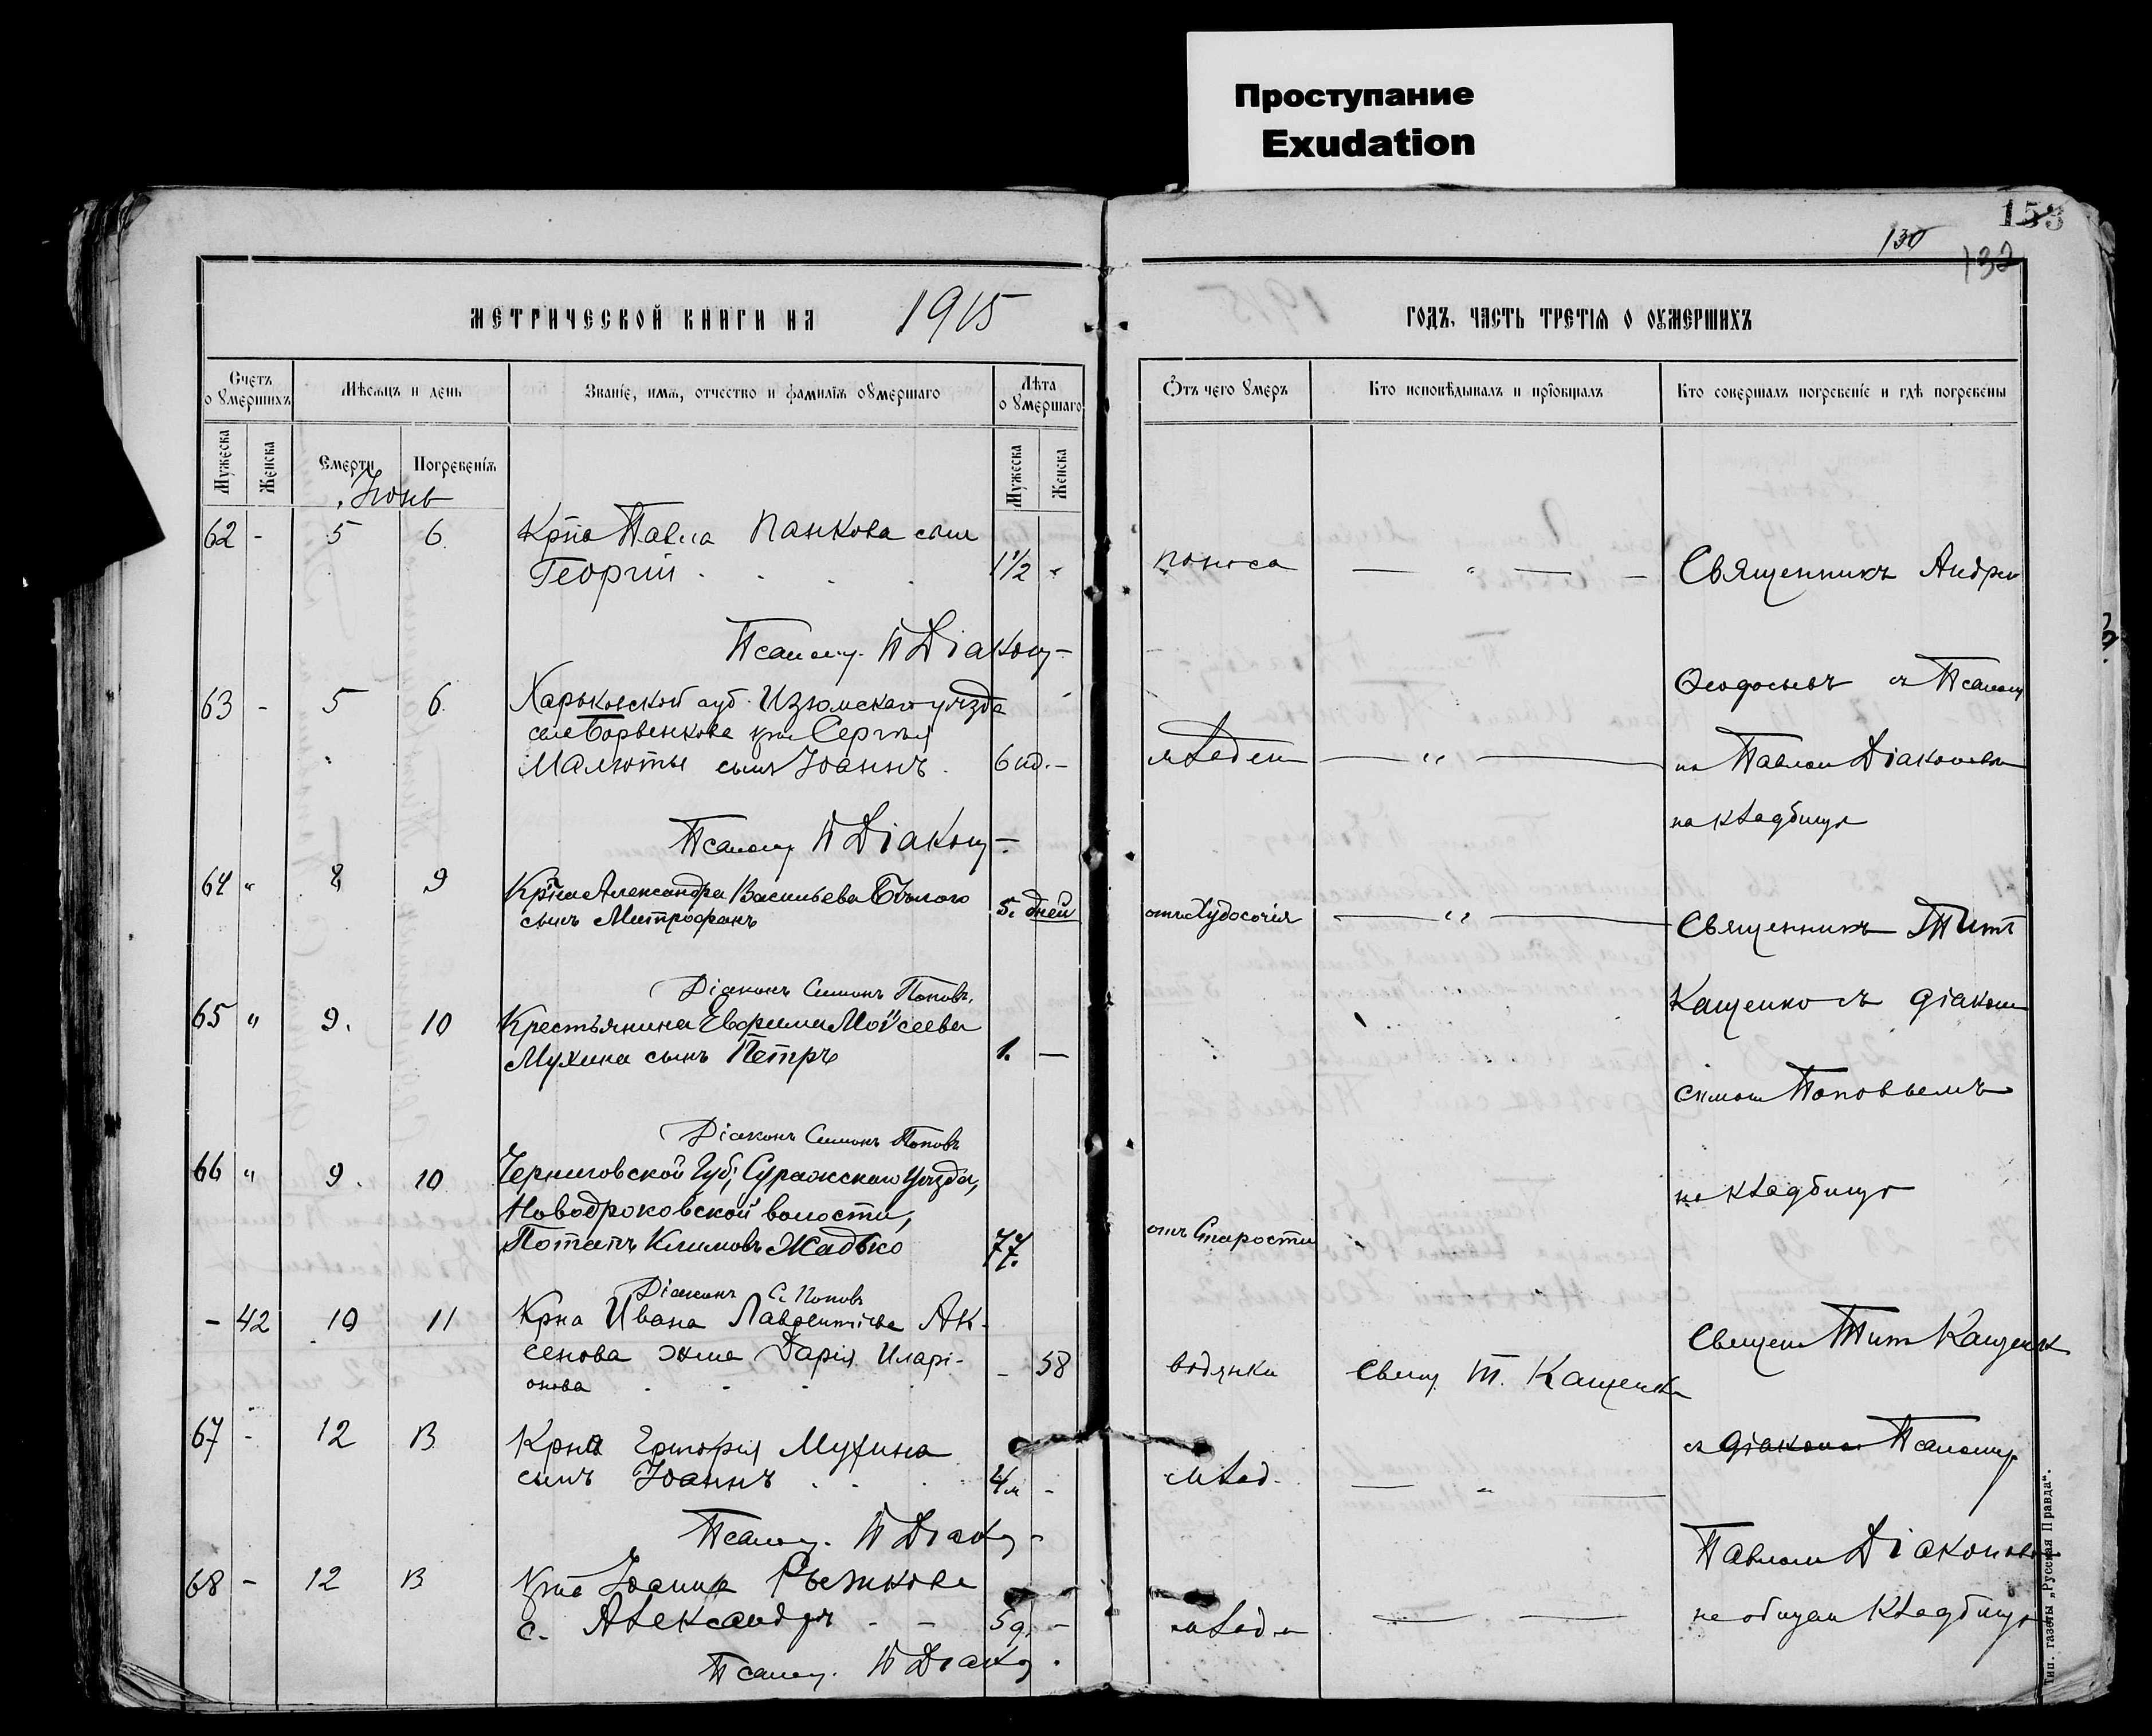 Проступание
Exudation
153
130
132
МЕТРИЧЕСКОЙ КНИГИ НА 1915
ГОДЪ, ЧАСТЬ ТРЕТІЯ О ОУМЕРШИХЪ
Счетъ о умершихъ
Мѣсяцъ и день
Званіе, имя, отчество и фамилія оумершаго
Лѣта оумершаго
Отъ чего умеръ
Кто исповѣдывалъ и пріобщалъ
Кто совершалъ погребеніе и гдѣ погребены
Мужеска
Женска
Смерти
Погребенія
Мужеска
Женска
Іюнь
62 - 5 6 Крна Павла Панкова сынъ
Георгій 1½ поноса Священникъ Андрей
Псаломщ. П Діакон
63 - 5 6 Харьковской губ. Изюмскаго уѣзда
села Барвенкова крна Сергѣя
Малюты сынъ Іоаннъ 6 нд. - младен
Ѳеодосьевъ съ Псаломщ
Павлом Діаконов
на кладбищѣ
Псаломщ П Діакон
64 " 8 9 Крна Александра Васильева Бѣлого
сынъ Митрофанъ 5. дней отъ худосочія Священникъ Титъ
Діаконъ Симонъ Поповъ.
Кащенко съ діакон
65 " 9. 10 Крестьянина Евфима Моѵсеева
Мухина сынъ Петръ 1. —
Симон Поповымъ
Діаконъ Симонъ Поповъ
66 " 9. 10 Черниговской Губ; Суражскаго Уѣзда,
Новодроковской волости,
на кладбищѣ
Потапъ Климовъ Жадько 77. отъ Старости
Діаконъ С. Поповъ
- 42 10 11 Крна Ивана Лаврентіева Ак-
сенова жена Дарія Иларі-
онова - 58 водянки Свящ. Т. Кащенко
Священ Титъ Кащенк
67 - 12 13 Крна Григорія Мухина
сынъ Іоаннъ 4 м - млад.
съ діакона Псаломщ
Псаломщ. П Діак
Павлом Діаконов
68 - 12 13 Крна Іоанна Рыжкова
с. Александръ 5 д. - млад-
на общем Кладбищѣ
Псаломщ. П Діак
Тип. газеты „Русская Правда".